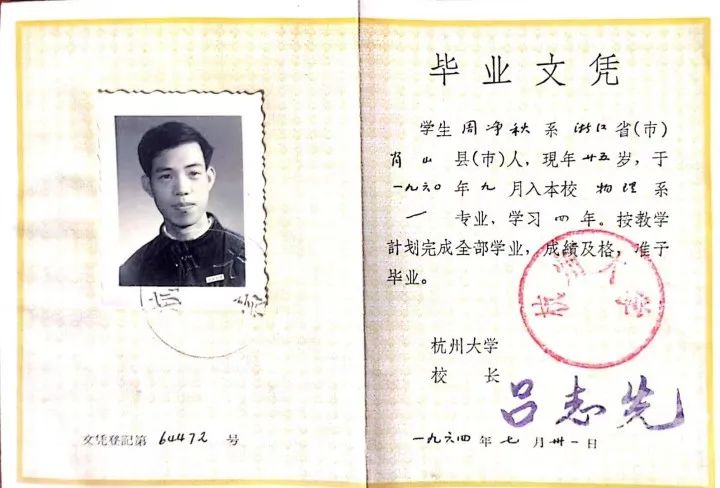 文凭登記第 64472 号
毕业文凭
学生 周净秋 系 浙江 省(市)
肖山 县(市)人，現年 廿五 岁，于
一九六〇 年 九 月入本校 物理 系
一 专业，学习 四 年。按教学
計划完成全部学业，成績及格，准予
毕业。
杭州大学
杭州大学
校 长 吕志先
一九六四 年 七 月 卅一 日